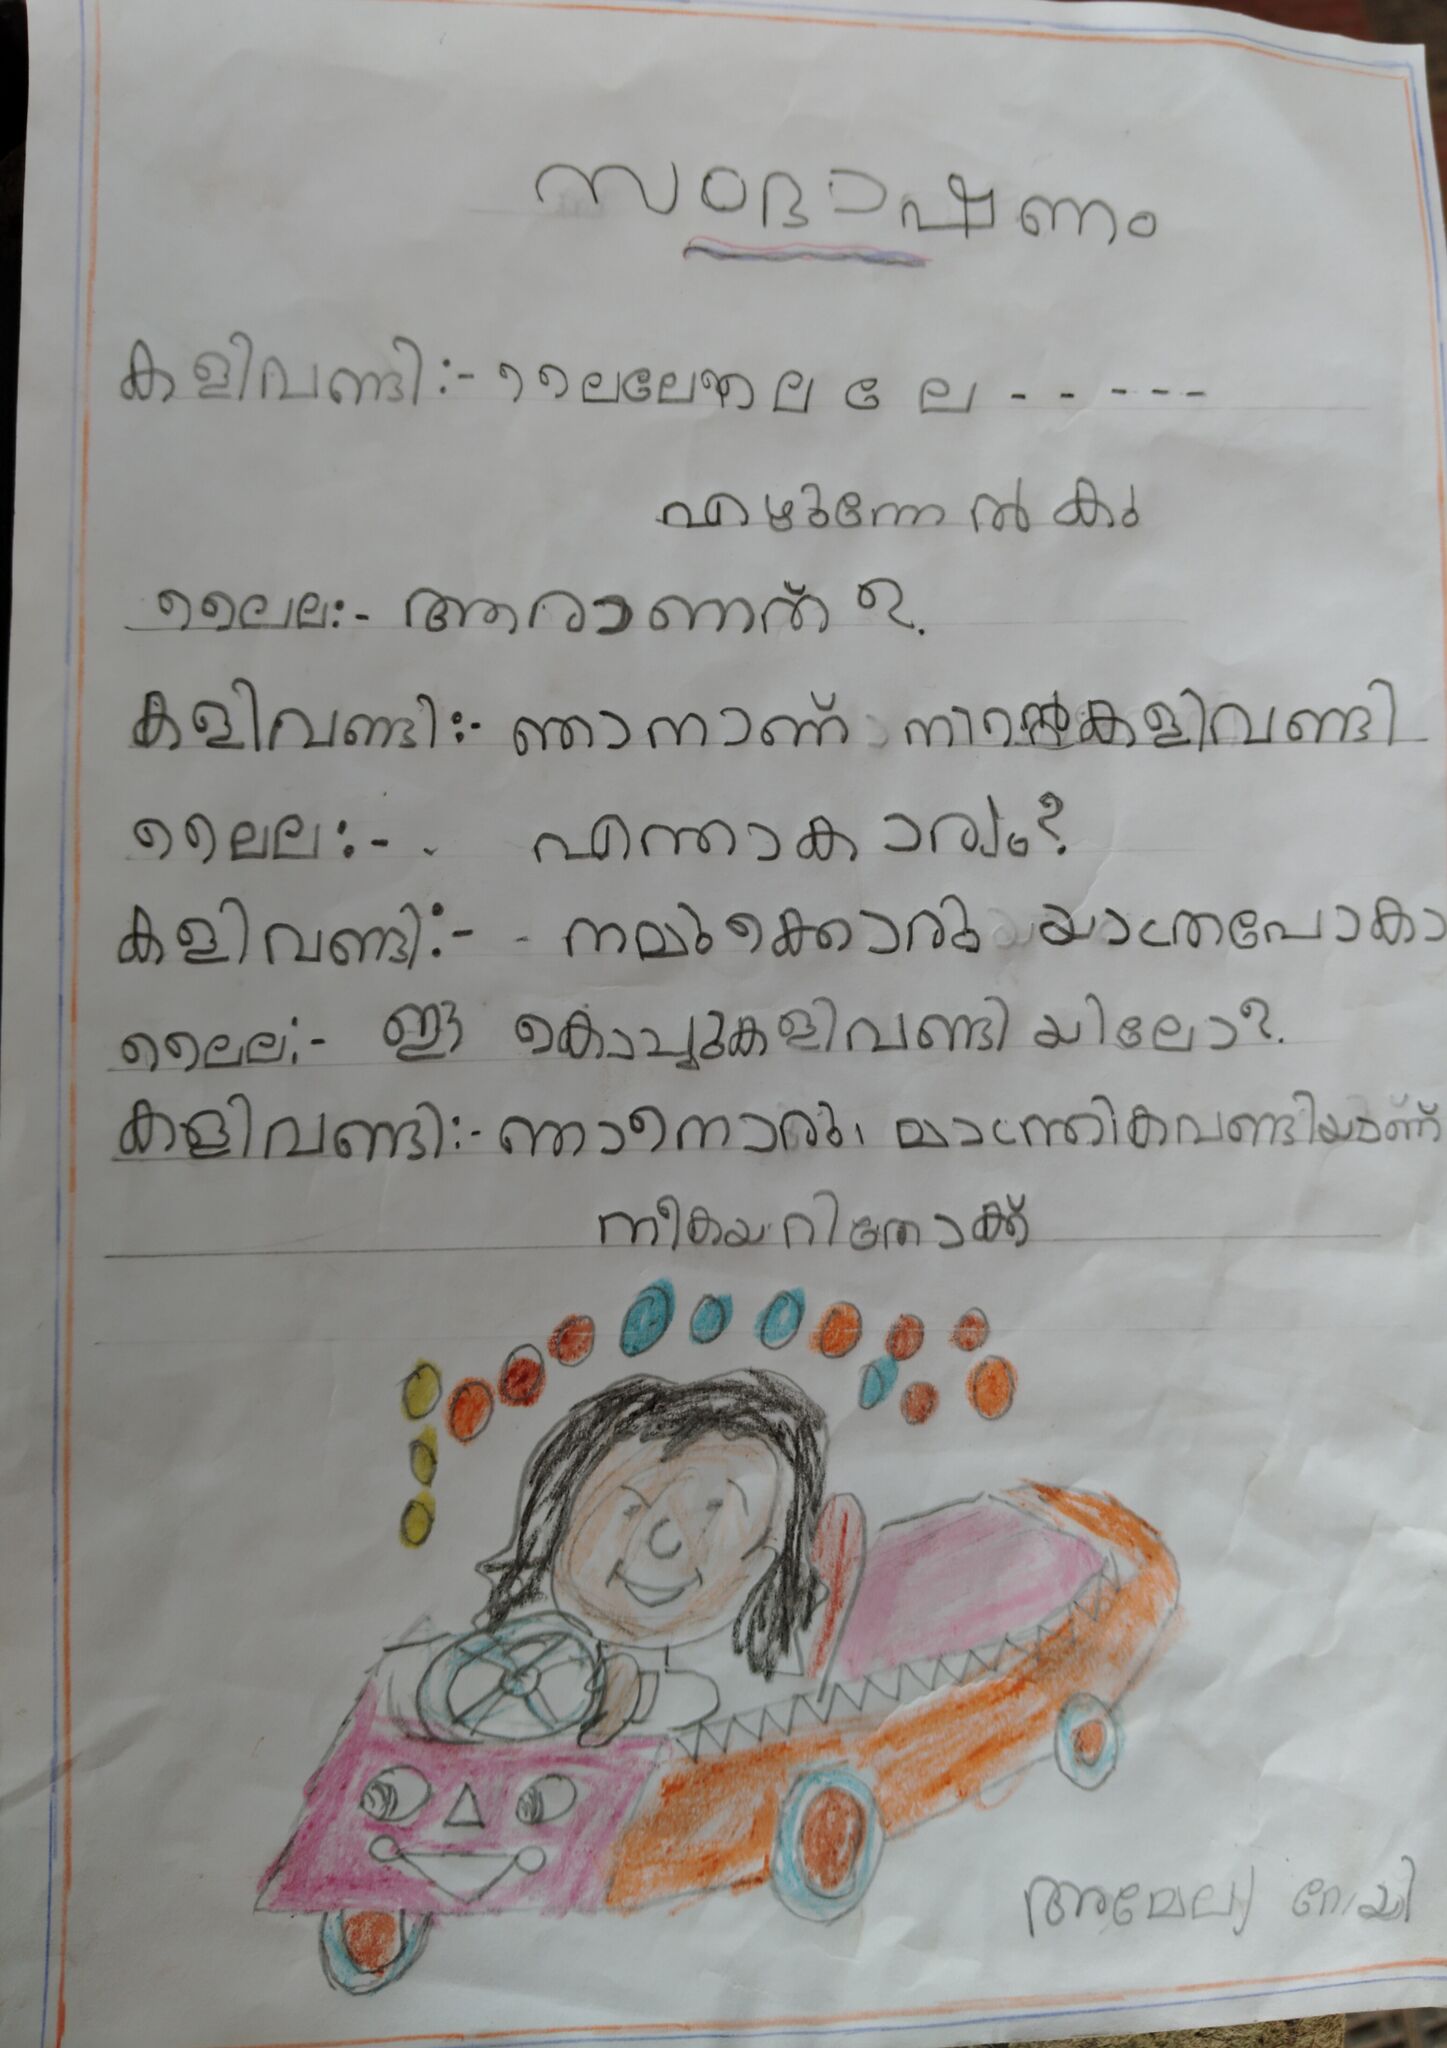 സംഭാഷണം
കളിവണ്ടി:- ലൈലേ ലൈ ലേ ല -----
എഴുന്നേൽകു
ലൈല:- ആരാണത് ?.
കളിവണ്ടി:- ഞാനാണ് നിന്റെ കളിവണ്ടി
ലൈല:- എന്താകാര്യം?
കളിവണ്ടി:- നമുക്കൊരു യാത്രപോകാ
ലൈല:- ഈ കൊച്ചുകളിവണ്ടിയിലോ?.
കളിവണ്ടി:- ഞാനൊരു മാന്ത്രികവണ്ടിയാണ്
നീകയറിനോക്ക്
അമേല്യ റോയി